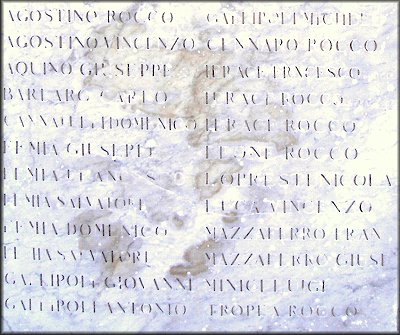 AGOSTINO ROCCO GALLIPOLI MICHEL
AGOSTINO VINCENZO GENNAPO ROCCO
AQUINO GIUSEPPE IERACE FRNCESCO
BARBARO CARLO IERACE ROCCO
DOMENICO IERACE ROCCO
FEMIA GIUSEPPE LEONE ROCCO
FEMIA LOPRESTI NICOLA
FEMIA SALVATORE LUCA VINCENZO
FEMIA DOMENICO MAZZAFERRO FRAN
SALVATORE MAZZAFERRO GIUSE
GALLIPOLI GIOVANNI MINICI LUIGI
GALLIPOLI ANTONIO TROPEA ROCCO